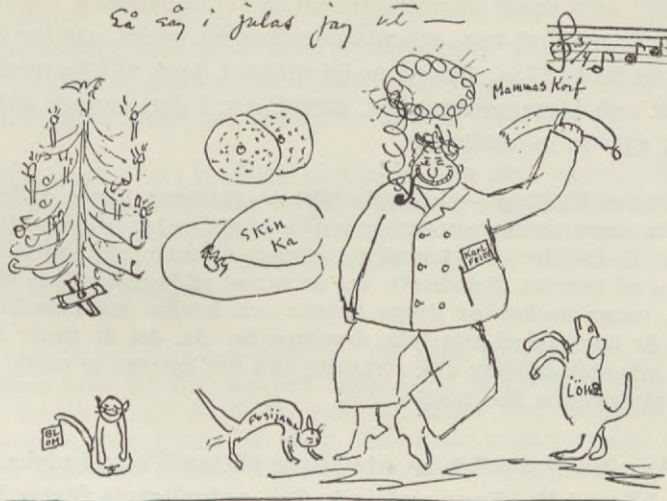 Så såg i julas jag ut —
3/4
Mammas Korf
SKIN
KA
KARL
FEIDO
BL
OM
Fusijama
LÖNN